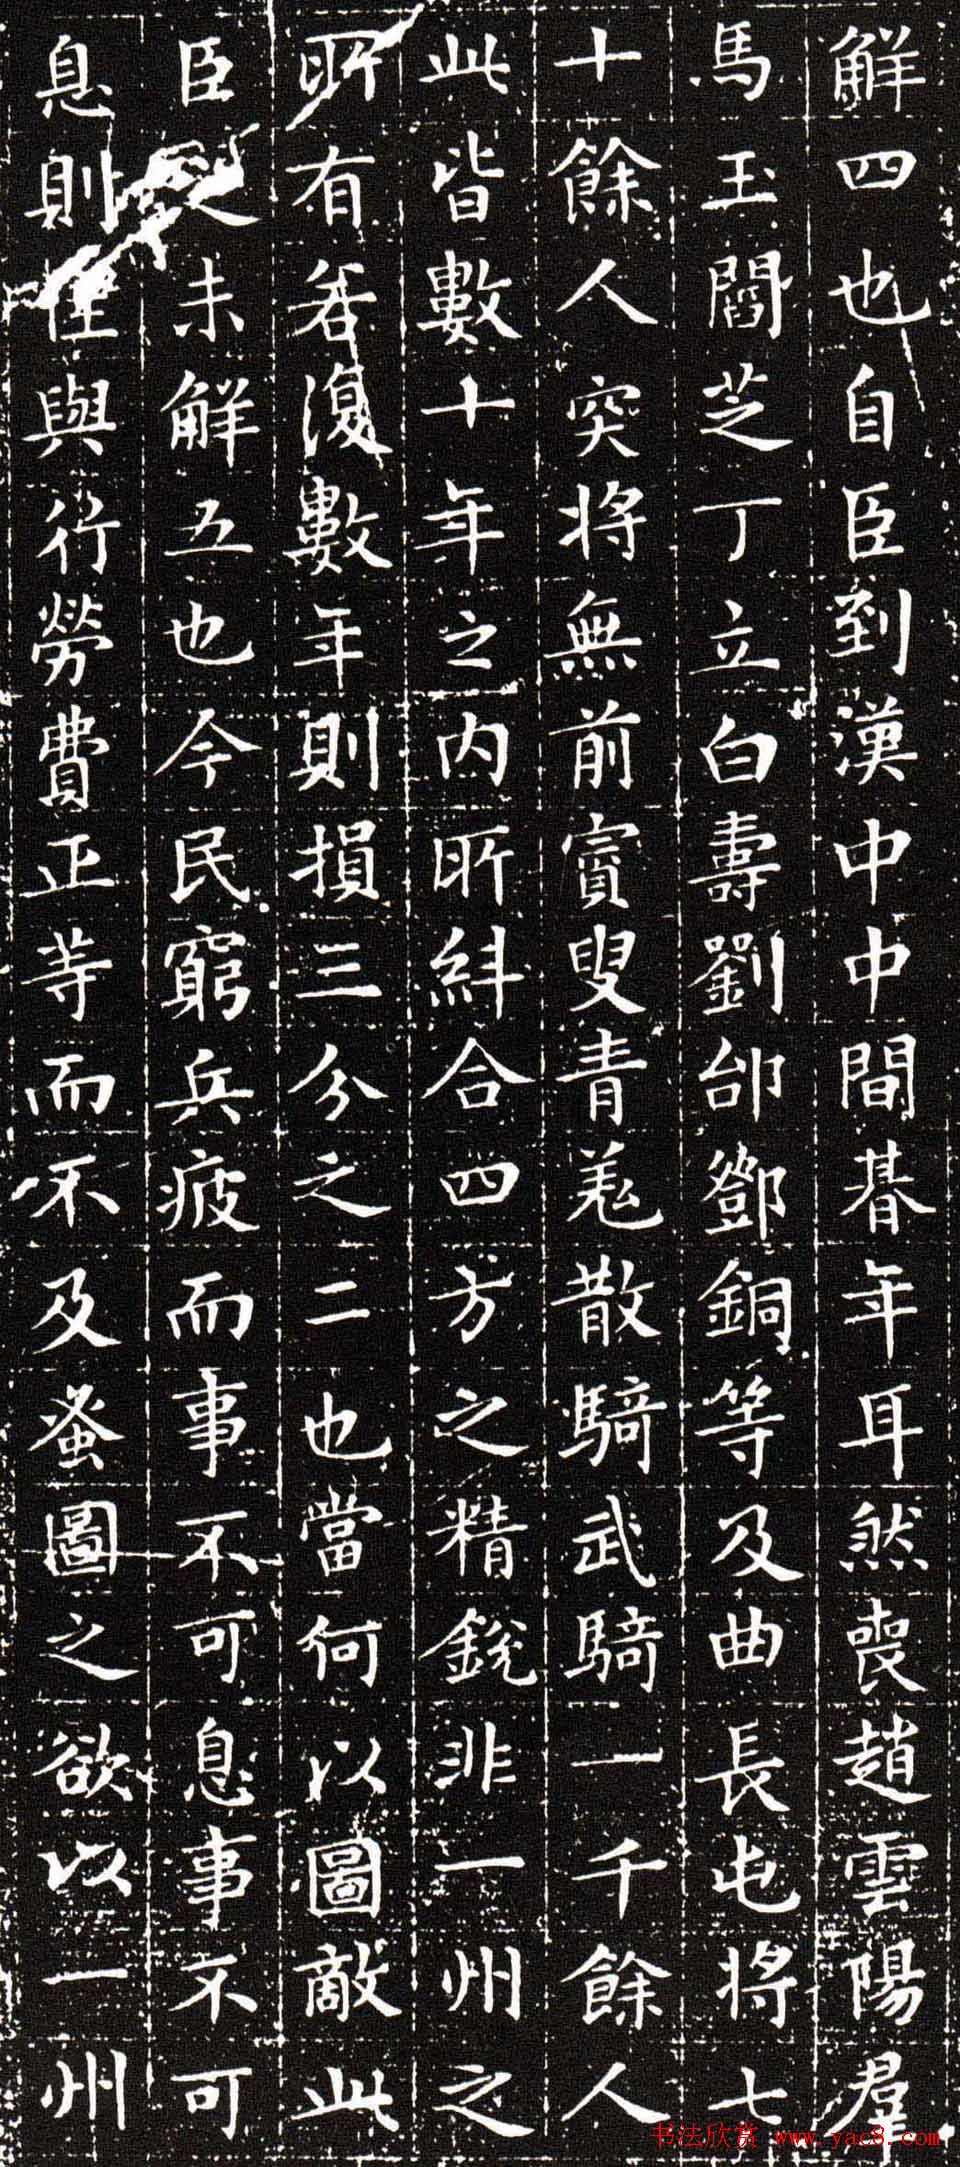 觧四也自臣到漢中中間朞年耳然喪趙雲陽羣
馬玉閻芝丁立白壽劉郃鄧銅等及曲長屯將七
十餘人突將無前賨叟青羌散騎武騎一千餘人
此皆數十年之内所糾合四方之精銳非一州之
所有若復數年則損三分之二也當何以圖敵此
臣之未觧五也今民窮兵疲而事不可息事不可
息則住與行勞費正等而不及蚤圖之欲以一州
书法欣赏 www.yac8.com